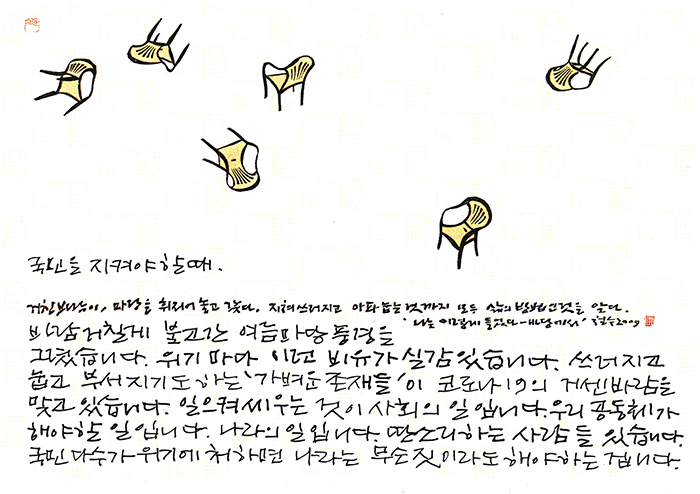 국민을 지켜야할때.
거친바람이, 마당을 휘저어 놓고 갔다. 지쳐쓰러지고 아파 눕는것까지 모두 삶의 방법인것을 안다.
'나는 이렇게 들었다-마당에서' 철수2009
바람 거칠게 불고간 여름마당 풍경을
그렸습니다. 위기 마다 이런 비유가 실감있습니다. 쓰러지고
눕고 부서지기도 하는 '가벼운 존재들'이 코로나19의 거센바람을
맞고 있습니다. 일으켜세우는 것이 사회의 일입니다. 우리 공동체가
해야할 일입니다. 나라의 일입니다. 딴소리하는 사람들 있습니다.
국민다수가 위기에 처하면 나라는 무슨짓이라도 해야하는 겁니다.